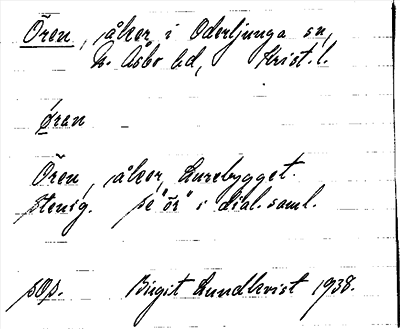 Ören, åker i Oderljunga sn,
N. Åsbo hd, Krist. l.
øran
Ören, åker, Lurebygget.
stenig. se "ör" i dial. saml.
sOp. Birgit Lundkvist 1938.